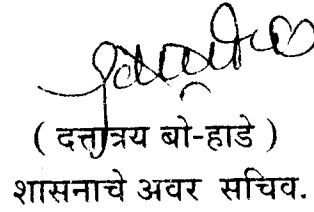 ( दत्तात्रय बो-हाडे )
शासनाचे अवर सचिव.